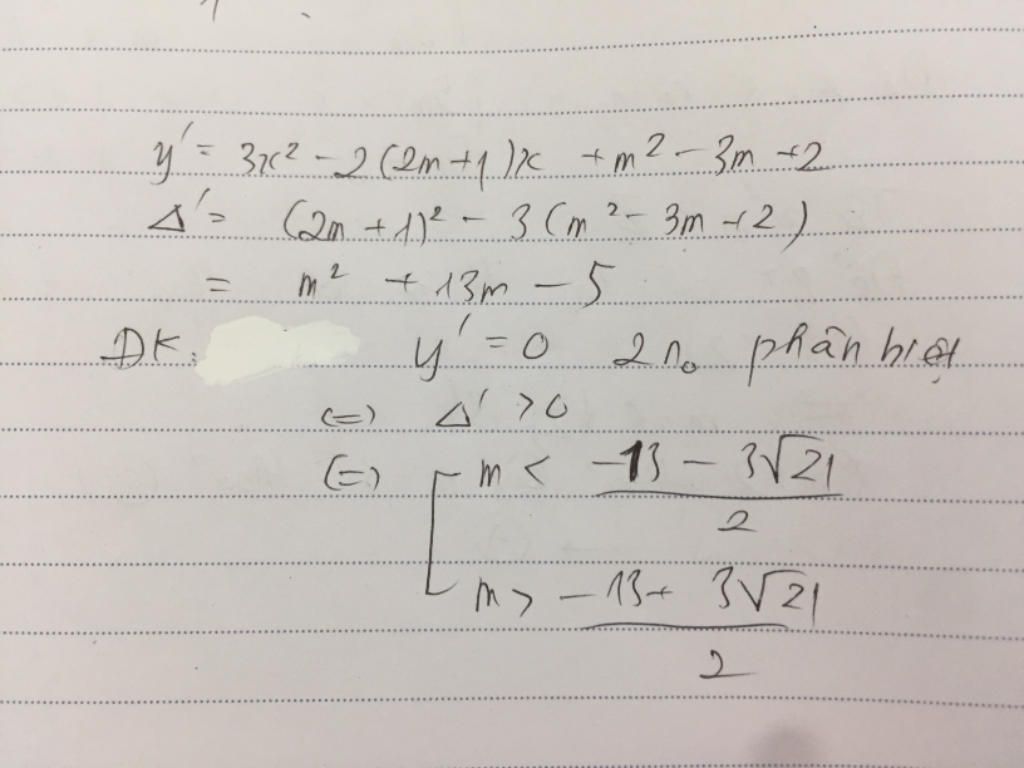 y' = 3x² - 2(2m+1)x + m² - 3m +2
Δ' = (2m + 1)² - 3(m² - 3m + 2)
= m² + 13m - 5
ĐK: y' = 0 2n₀ phân biệt
(=) Δ' > 0
(=) [ m < (-13 - 3√21)/2
m > (-13 + 3√21)/2